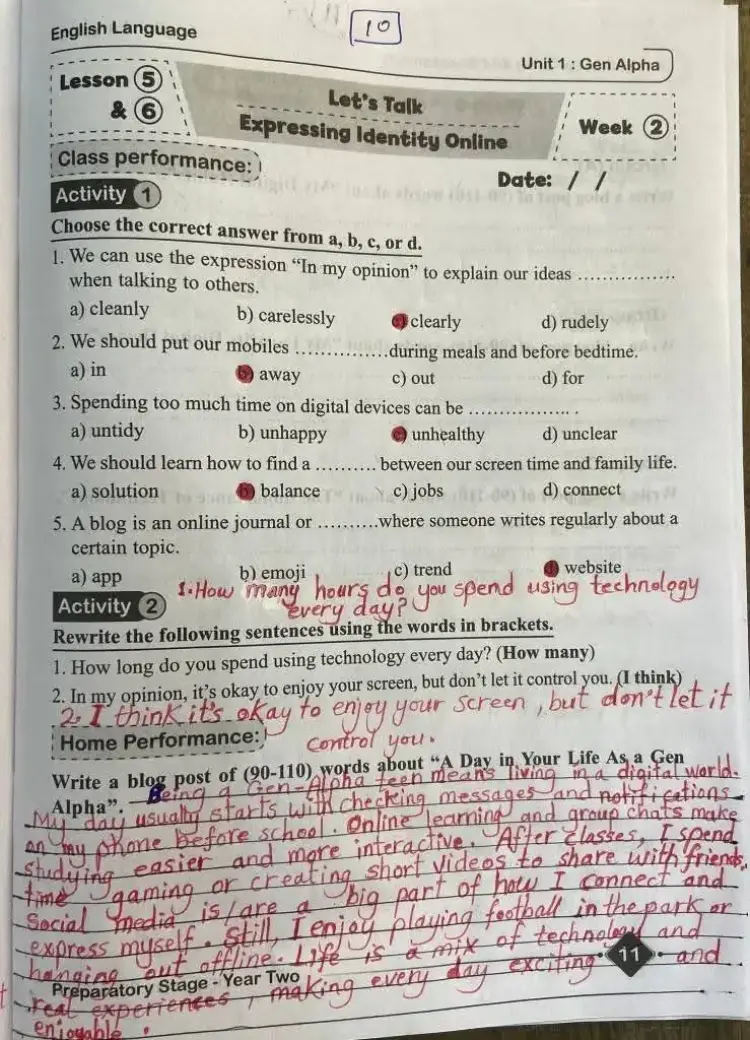 10
English Language
Unit 1 : Gen Alpha
Lesson 5
& 6
Let's Talk
Expressing Identity Online
Week 2
Class performance:
Date: / /
Activity 1
Choose the correct answer from a, b, c, or d.
1. We can use the expression “In my opinion” to explain our ideas ................
when talking to others.
a) cleanly b) carelessly c) clearly d) rudely
2. We should put our mobiles ...............during meals and before bedtime.
a) in b) away c) out d) for
3. Spending too much time on digital devices can be ................. .
a) untidy b) unhappy c) unhealthy d) unclear
4. We should learn how to find a .......... between our screen time and family life.
a) solution b) balance c) jobs d) connect
5. A blog is an online journal or ..........where someone writes regularly about a
certain topic.
a) app b) emoji c) trend d) website
1. How many hours do you spend using technology
every day?
Activity 2
Rewrite the following sentences using the words in brackets.
1. How long do you spend using technology every day? (How many)
2. In my opinion, it's okay to enjoy your screen, but don't let it control you. (I think)
2. I think it's okay to enjoy your screen, but don't let it
control you.
Home Performance:
Write a blog post of (90-110) words about “A Day in Your Life As a Gen
Alpha”.
Being a Gen-Alpha teen means living in a digital world.
My day usually starts with checking messages and notifications
on my phone before school. Online learning and group chats make
studying easier and more interactive. After classes, I spend
time gaming or creating short videos to share with friends.
Social media is/are a big part of how I connect and
express myself. Still, I enjoy playing football in the park or
hanging out offline. Life is a mix of technology and
real experiences, making every day exciting and
enjoyable.
Preparatory Stage - Year Two
11